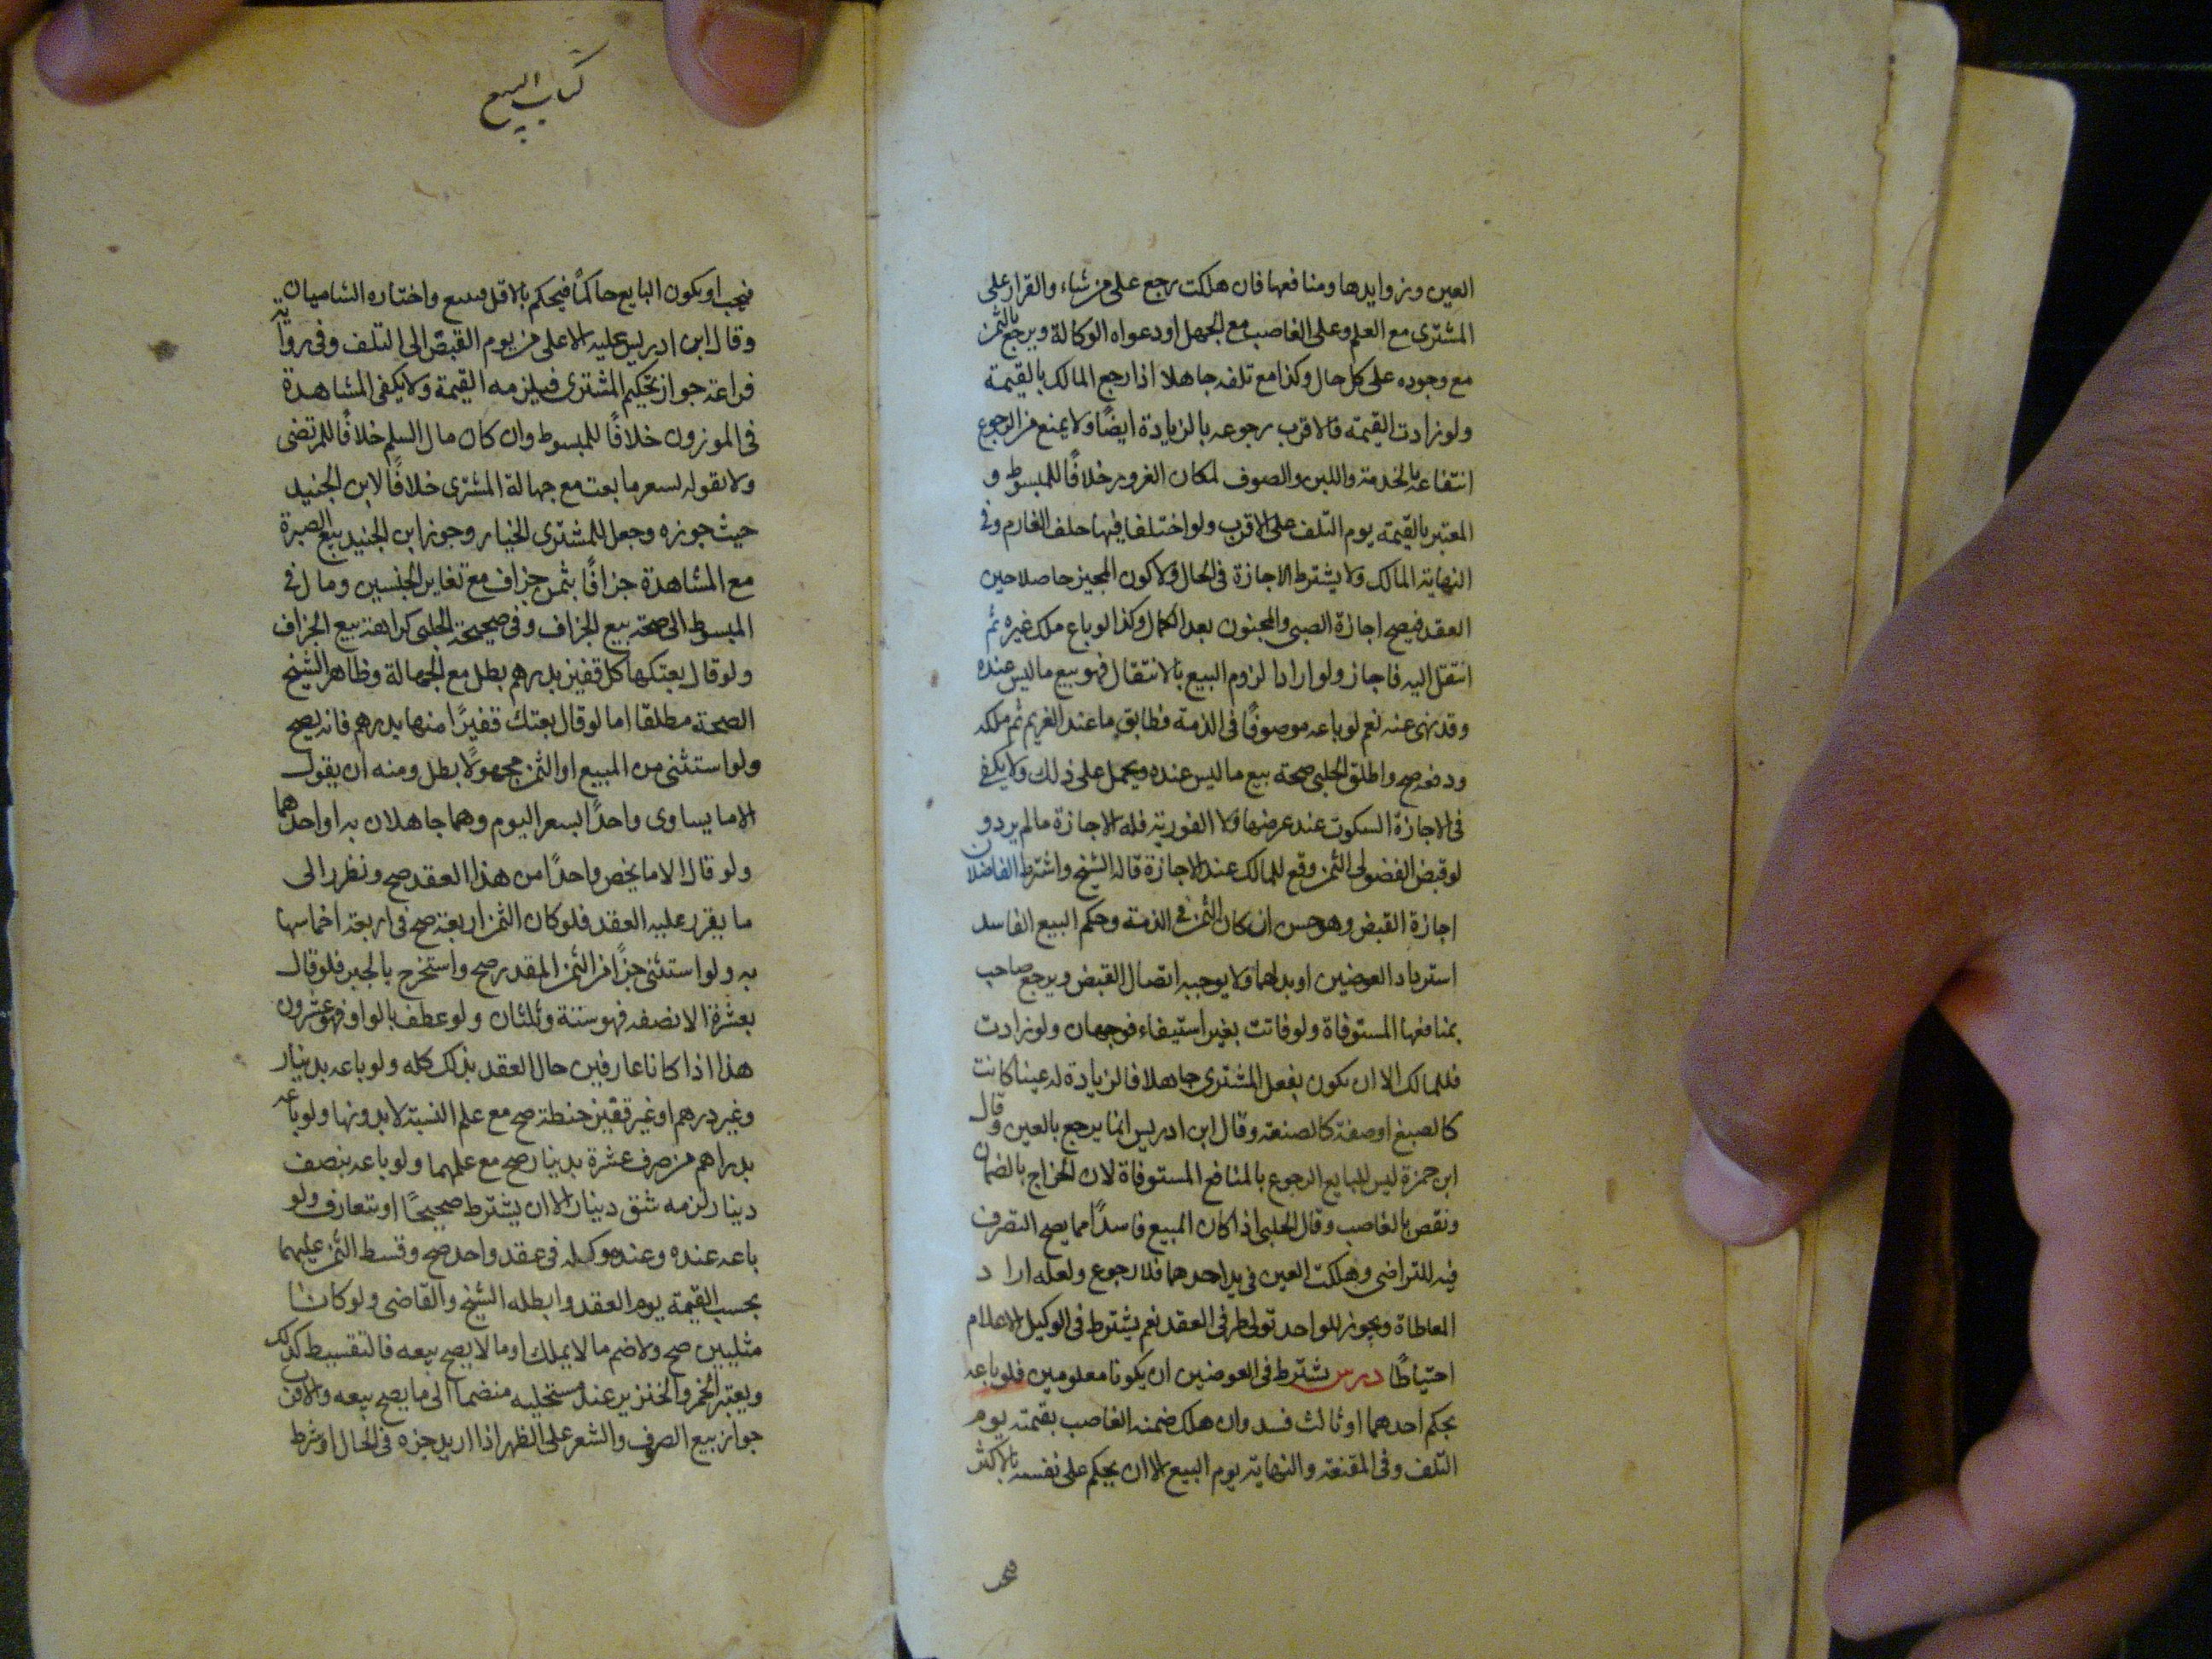 العين وزوايدها ومنافعها فان هلكت رجع على من شاء والقرار على
المشترى مع العلم وعلى الغاصب مع الجهل او دعواه الوكالة ويرجع بالثمن
مع وجوده على كل حال وكذا مع تلفه جاهلا اذا رجع المالك بالقيمة
ولو زادت القيمة فالاقرب رجوعه بالزيادة ايضًا ولا يمنع من الرجوع
انتفاعه بالخدمة واللبن والصوف لمكان الغرور خلافًا للمبسوط و
المعتبر بالقيمة يوم التلف على الاقرب ولو اختلفا فيها حلف الغارم وفى
النهاية المالك ولا يشترط الاجازة فى الحال ولا كون المجيز حاصلا حين
العقد فيصح اجازة الصبى والمجنون بعد الكمال وكذا لو باع ملك غيره ثم
انتقل اليه فاجاز ولو ارادا لزوم البيع بالانتقال فهو بيع ما ليس عنده
وقد نهى عنه نعم لو باعه موصوفًا فى الذمة فطابق ما عند الغريم ثم ملكه
ودفعه صح واطلق الحلبى صحة بيع ما ليس عنده ويحمل على ذلك ولا يكفى
فى الاجازة السكوت عند عرضها ولا الفورية فله الاجازة ما لم يرد و
لو قبض الفضولى الثمن وقع للمالك عند الاجازة قاله الشيخ واشترط الفاضلان
اجازة القبض وهو حسن ان كان الثمن فى الذمة وحكم البيع الفاسد
استرداد العوضين او بدلهما ولا يوجبه اتصال القبض ويرجع صاحب
بمنافعها المستوفاة ولو فاتت بغير استيفاء فوجهان ولو زادت
فللمالك الا ان يكون بفعل المشترى جاهلا فالزيادة له عينا كانت
كالصبغ او صفة كالصنعة وقال ابن ادريس انما يرجع بالعين وقال
ابن حمزة ليس للبايع الرجوع بالمنافع المستوفاة لان الخراج بالضمان
ونقص بالغاصب وقال الحلبى اذا كان المبيع فاسدًا مما يصح التصرف
فيه للتراضى وهلكت العين فى يد احدهما فلا رجوع ولعله اراد
العاطاة ويجوز للواحد تولى طرفى العقد نعم يشترط فى الوكيل الاعلام
احتياطًا درس يشترط فى العوضين ان يكونا معلومين فلو باعه
بحكم احدهما او ثالث فسد وان هلك ضمنه الغاصب بقيمته يوم
التلف وفى المقنعة والنهاية يوم البيع الا ان يحكم على نفسه بالاكثر
كتاب البيع
فيجب او يكون البايع حاكمًا فيحكم بالاقل فيتبع واختاره الشاميان
وقال ابن ادريس عليه الاعلى من يوم القبض الى التلف وفى رواية
فراعة جواز تحكيم المشترى فيلزمه القيمة ولا يكفى المشاهدة
فى الموزون خلافًا للمبسوط وان كان مال السلم خلافًا للمرتضى
ولا بقوله بسعر ما بعت مع جهالة المشترى خلافًا لابن الجنيد
حيث جوزه وجعل للمشترى الخيار وجوز ابن الجنيد بيع الصبرة
مع المشاهدة جزافًا بثمن جزاف مع تغاير الجنسين ومال فى
المبسوط الى صحة بيع الجزاف وفى صحيحة الحلبى كراهة بيع الجزاف
ولو قال بعتكها كل قفيز بدرهم بطل مع الجهالة وظاهر الشيخ
الصحة مطلقا اما لو قال بعتك قفيزًا منها بدرهم فانه يصح
ولو استثنى من المبيع او الثمن مجهولًا بطل ومنه ان يقول
الا ما يساوى واحدًا بسعر اليوم وهما جاهلان به او احدهما
ولو قال الا ما يخص واحدًا من هذا العقد صح ونظر الى
ما يقرر عليه العقد فلو كان الثمن اربعة صح فى اربعة اخماسها
به ولو استثنى جزًا من الثمن المقدر صح واستخرج بالجبر فلو قال
بعشرة الا نصفه فهو ستة وثلثان ولو عطف بالواو فهو عشرون
هذا اذا كانا عارفين حال العقد بذلك كله ولو باعه بدينار
وغير درهم او غير قفيز حنطة صح مع علم النسبة لا بدونها ولو باعه
بدراهم من صرف عشرة بدينار صح مع علمهما ولو باعه بنصف
دينار لزمه شق دينار الا ان يشترط صحيحًا او يتعارف ولو
باعه عنده وعند موكله فى عقد واحد صح وقسط الثمن عليهما
بحسب القيمة يوم العقد وابطله الشيخ والقاضى ولو كانا
مثليين صح ولا ضم ما لا يملك او ما لا يصح بيعه فالتقسيط كذلك
ويعتبر الخمر والخنزير عند مستحليه منضما الى ما يصح بيعه والاقرب
جواز بيع الصوف والشعر على الظهر اذا اريد جزه فى الحال او شرط